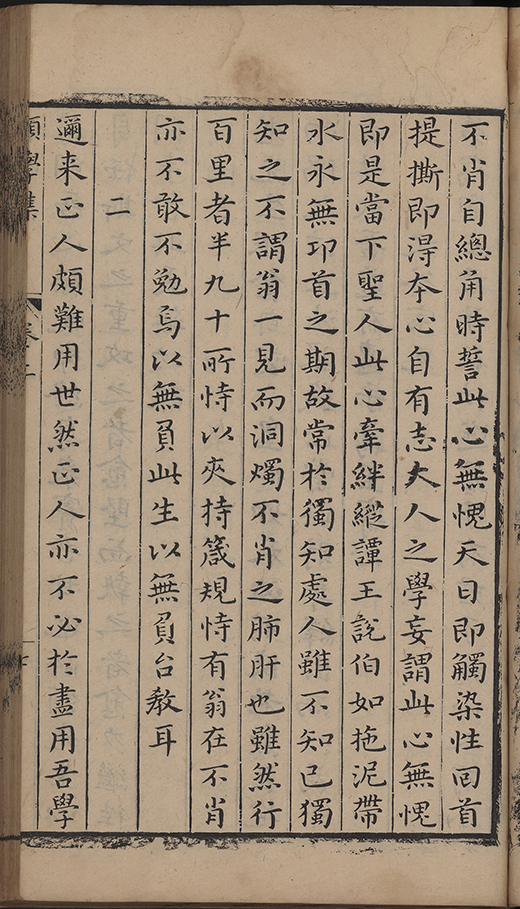 不肖自總角時誓此心無愧天日即觸染性回首
提撕即淂夲心自有志大人之學妄謂此心無愧
即是當下聖人此心牽絆縱譚王說伯如拖泥帶
水永無卬首之期故常於獨知處人雖不知己獨
知之不謂翁一見而洞燭不肖之肺肝也雖然行
百里者半九十所恃以夾持箴規恃有翁在不肖
亦不敢不勉焉以無負此生以無負台教耳
二
邇来正人頗難用世然正人亦不必於盡用吾學
願學集
卷二